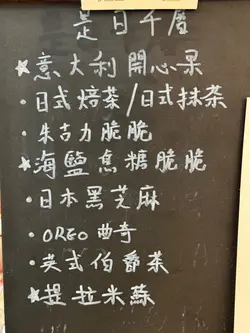 是日千層
★意大利開心果
·日式焙茶/日式抹茶
·朱古力脆脆
★海鹽焦糖脆脆
·日本黑芝麻
·OREO曲奇
·英式伯爵茶
★提拉米蘇